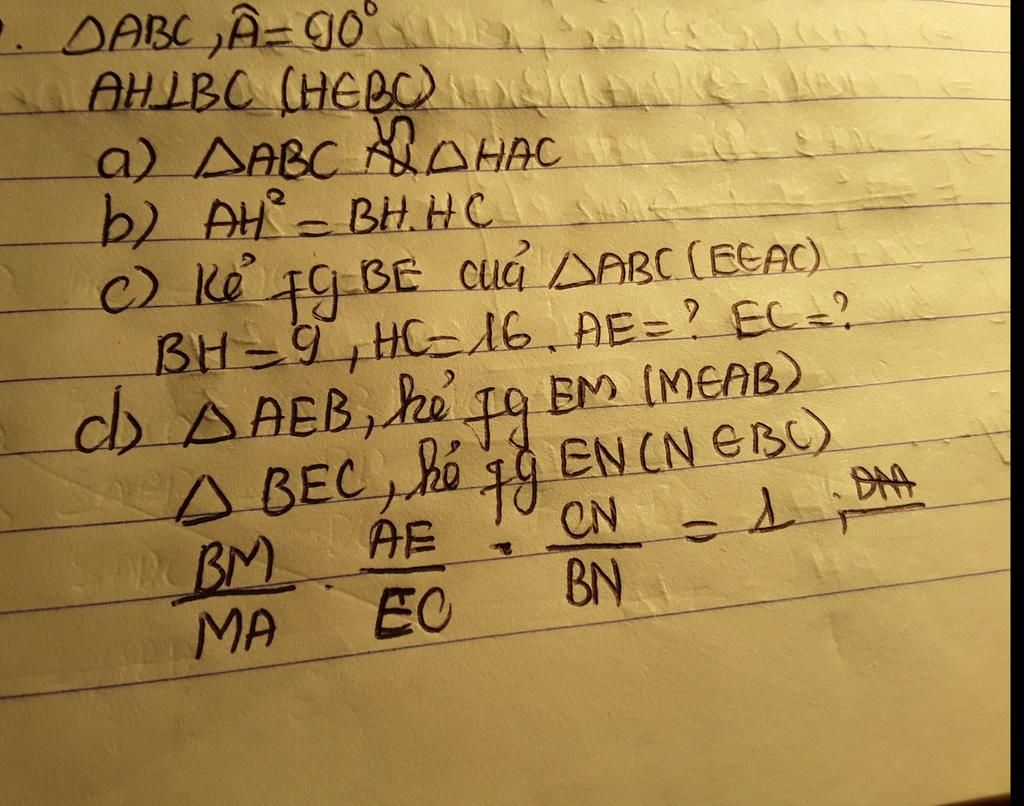 . ΔABC, Â = 90°
AH⊥BC (H∈BC)
a) ΔABC ∽ ΔHAC
b) AH² = BH.HC
c) Kẻ fg BE cuả ΔABC (E∈AC)
BH = 9, HC = 16. AE = ? EC = ?
d) ΔAEB, kẻ fg EM (M∈AB)
Δ BEC, kẻ fg EN (N∈BC)
BM/MA . AE/EC . CN/BN = 1 ;